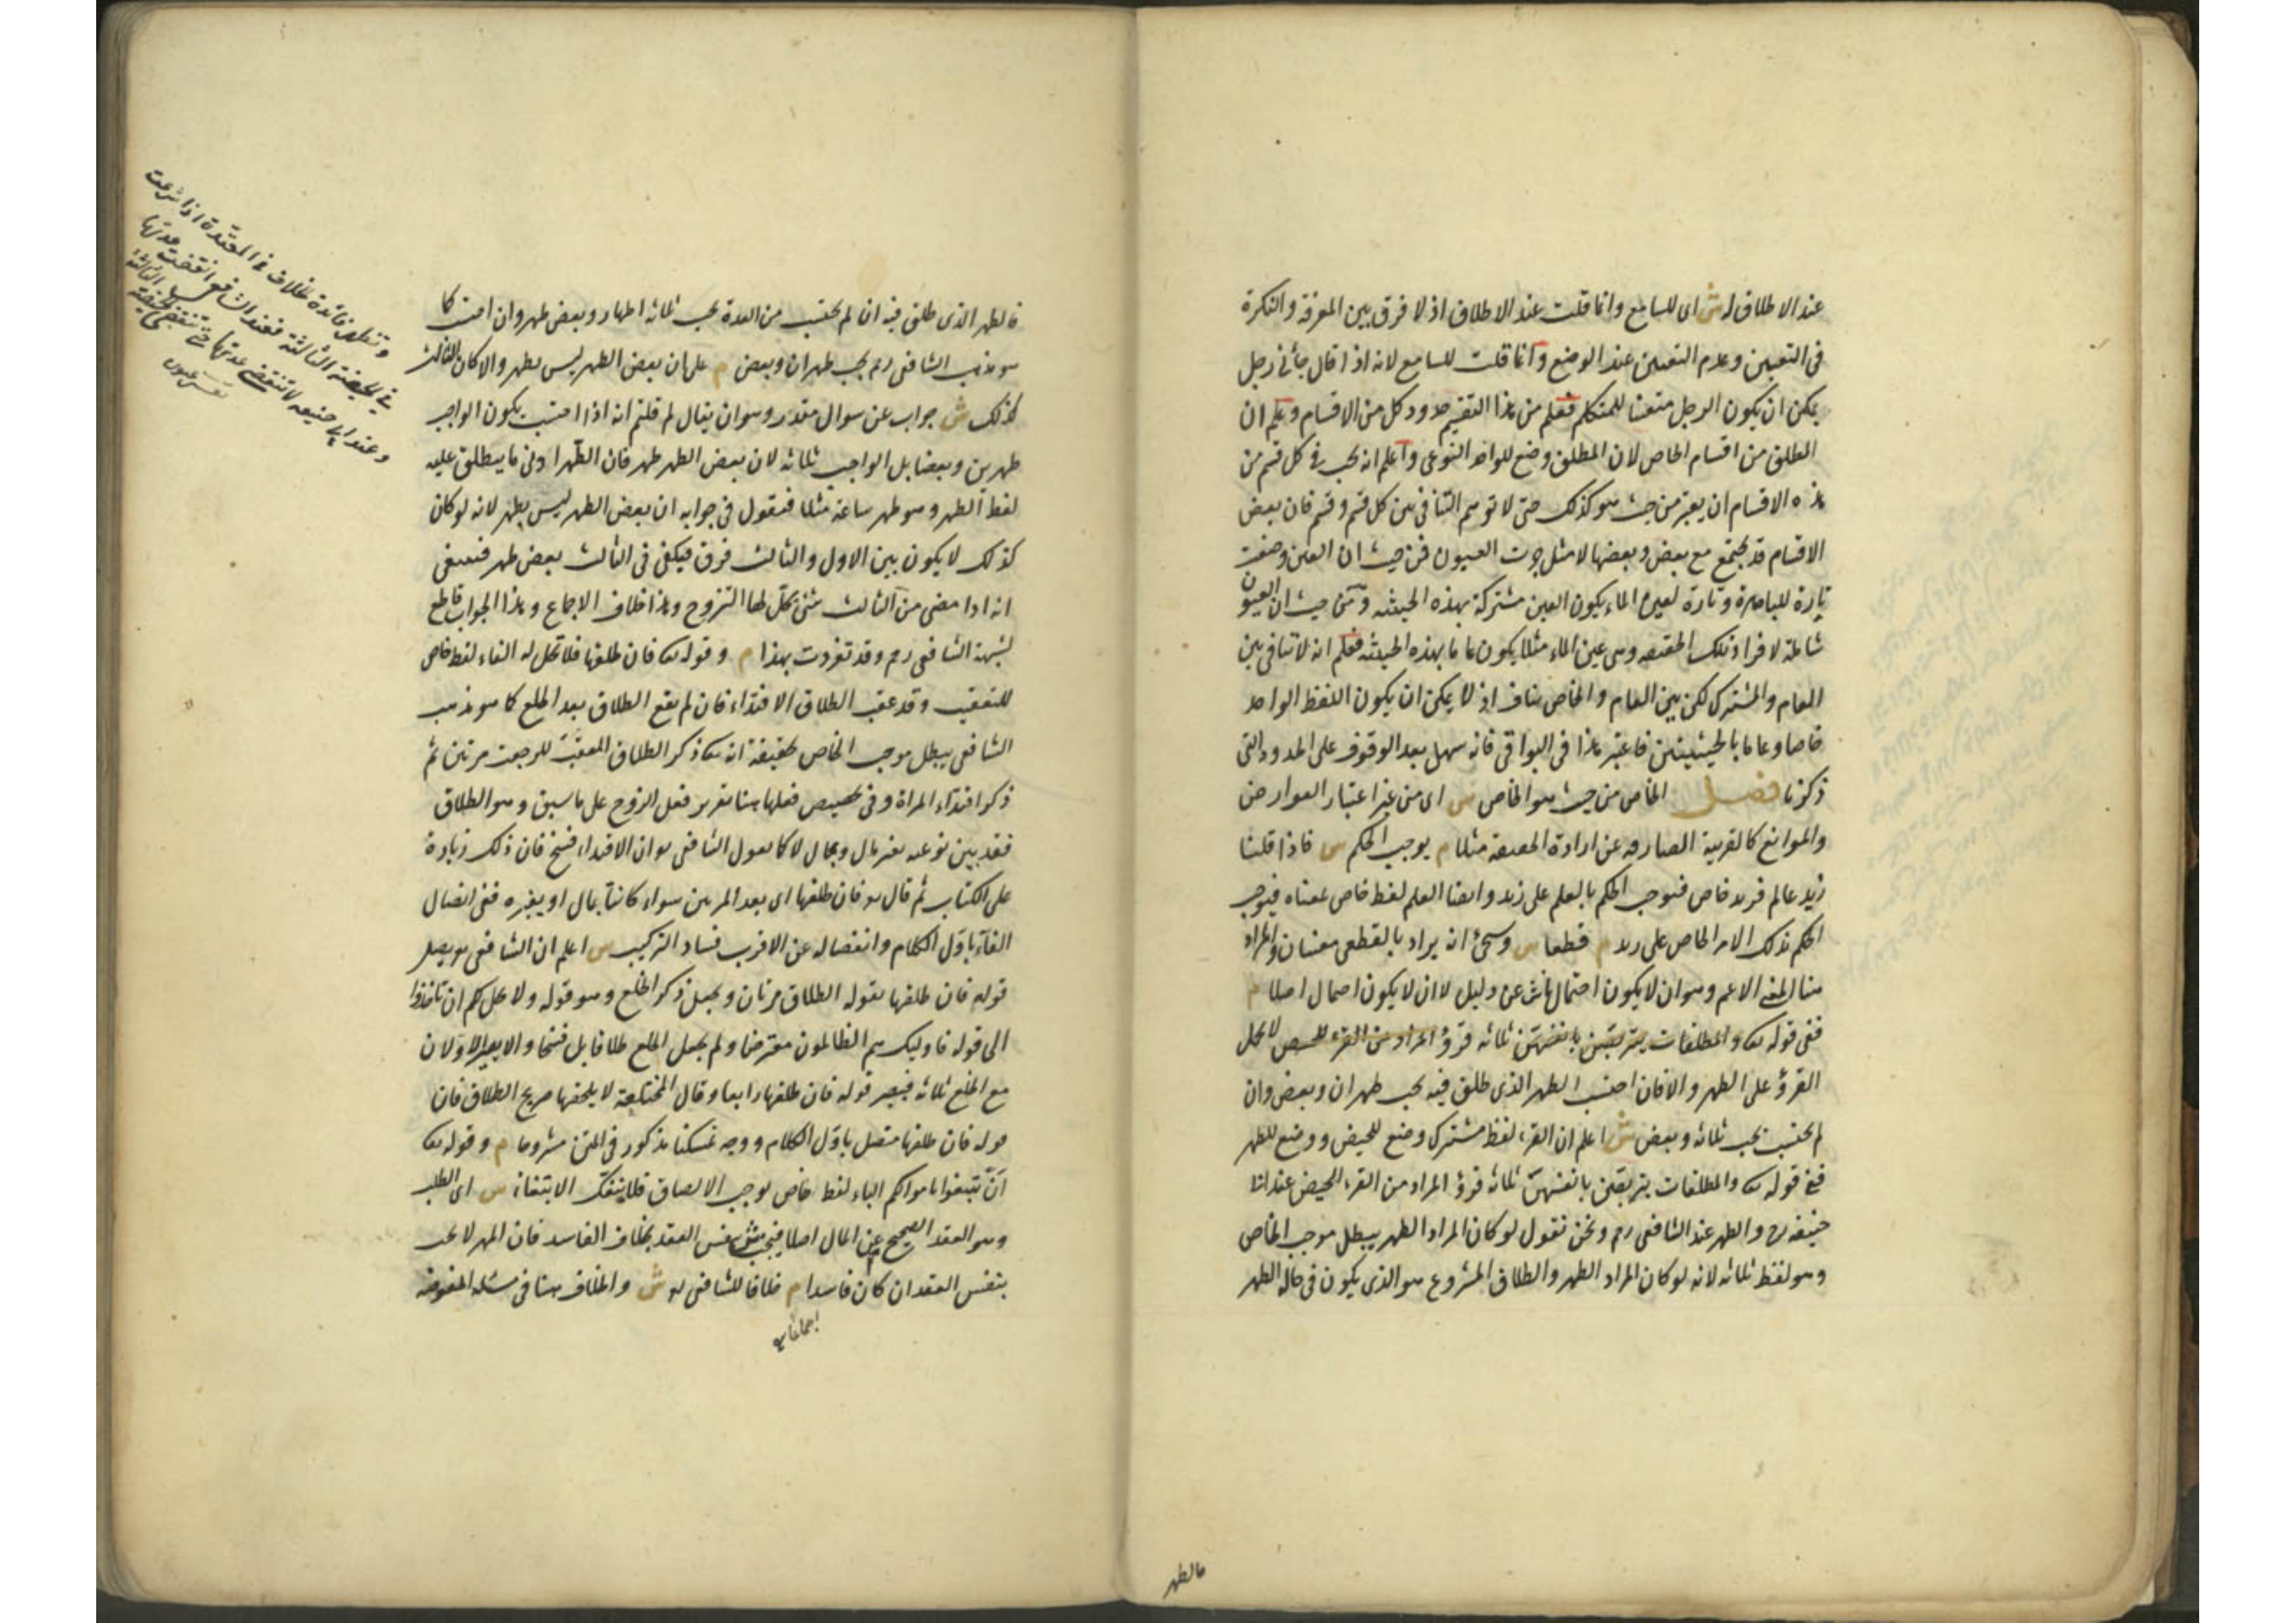 عند الاطلاق له ش اى للسامع وانما قلت عند الاطلاق اذ لا فرق بين المعرفة والنكرة
فى التعيين وعدم التعيين عند الوضع وانما قلت للسامع لانه اذا قال جائنى رجل
يمكن ان يكون الرجل متعينا للمتكلم فعلم من هذا التقسيم حدود كل من الاقسام وعلم ان
المطلق من اقسام الخاص لان المطلق وضع للواحد النوعى واعلم انه يجب فى كل قسم من
هذه الاقسام ان يعتبر من حيث هو كذلك حتى لا يتوهم التنافى بين كل قسم وقسم فان بعض
الاقسام قد يجتمع مع بعض وبعضها لا مثل جرت العيون فمن حيث ان العين وضعت
تارة للباصرة وتارة لعين الماء يكون العين مشتركة بهذه الحيثية ومن حيث ان العيون
شاملة لافراد تلك الحقيقه وهى عين الماء مثلا يكون عاما بهذه الحيثيه فعلم انه لا تنافى بين
العام والمشترك لكن بين العام والخاص تناف اذ لا يمكن ان يكون اللفظ الواحد
خاصا وعاما بالحيثيتين فاعتبر هذا فى البواقى فانه سهل بعد الوقوف على الحدود التى
ذكرنا فصل الخاص من حيث هو الخاص ش اى من غير اعتبار العوارض
والموانع كالقرينة الصارفه عن ارادة الحقيقه مثلا م يوجب الحكم ش فاذا قلنا
زيد عالم فزيد خاص فيوجب الحكم بالعلم على زيد وايضا العلم لفظ خاص بمعناه فيوجب
الحكم بذلك الامر الخاص على زيد م قطعا ش وسيجئ انه يراد بالقطعى معنيان والمراد
هنا المعنى الاعم وهو ان لا يكون احتمال ناش عن دليل لا ان لا يكون احتمال اصلا م
ففى قوله تعالى والمطلقات يتربصن بانفسهن ثلثه قروء المراد من القرء الحيض لا يحمل
القرؤ على الطهر والا فان احتسب الطهر الذى طلق فيه يجب طهران وبعض وان
لم يحتسب يجب ثلثه وبعض ش اعلم ان القرء لفظ مشترك وضع للحيض ووضع للطهر
ففى قوله تعالى والمطلقات يتربصن بانفسهن ثلثة قرؤ المراد من القرء الحيض عند ابى
حنيفه رح والطهر عند الشافعى رح ونحن نقول لو كان المراد الطهر يبطل موجب الخاص
وهو لفظ ثلثه لانه لو كان المراد الطهر والطلاق المشروع هو الذى يكون فى حالة الطهر
فالطهر
فالطهر الذى طلق فيه ان لم يحتسب من العدة يجب ثلثة اطهار وبعض طهر وان احتسب كما
هو مذهب الشافعى رح يجب طهران وبعض م على ان بعض الطهر ليس بطهر والا لكان الثالث
كذلك ش جواب عن سوال مقدر وهو ان يقال لم قلتم انه اذا احتسب يكون الواجب
طهرين وبعضا بل الواجب ثلثة لان بعض الطهر طهر فان الطهر ادنى ما يطلق عليه
لفظ الطهر وهو طهر ساعة مثلا فنقول فى جوابه ان بعض الطهر ليس بطهر لانه لو كان
كذلك لا يكون بين الاول والثالث فرق فيكفى فى الثالث بعض طهر فينبغى
انه اذا مضى من الثالث شئ يحل لها التزوج وهذا خلاف الاجماع وهذا الجواب قاطع
لشبهة الشافعى رح وقد تفردت بهذا م وقوله تعالى فان طلقها فلا تحل له الفاء لفظ خاص
للتعقيب وقد عقب الطلاق الافتداء فان لم يقع الطلاق بعد الخلع كما هو مذهب
الشافعى يبطل موجب الخاص تحقيقه انه تعالى ذكر الطلاق المعقب للرجعت مرتين ثم
ذكر افتداء المراة وفى تخصيص فعلها هنا تقرير فعل الزوج على ما سبق وهو الطلاق
فقد بين نوعيه بغير مال وبمال لا كما يقول الشافعى ان الافتداء فسخ فان ذلك زيادة
على الكتاب ثم قال فان طلقها اى بعد المرتين سواء كانتا بمال او بغيره ففى اتصال
الفاء باول الكلام وانفصاله عن الاقرب فساد التركيب ش اعلم ان الشافعى يصل
قوله فان طلقها بقوله الطلاق مرتان ويجعل ذكر الخلع وهو قوله ولا يحل لكم ان تاخذوا
الى قوله فاوليك هم الظالمون معترضا ولم يجعل الخلع طلاقا بل فسخا والا يصير الاولان
مع الخلع ثلثة فيصير قوله فان طلقها رابعا وقال المختلعة لا يلحقها صريح الطلاق فان
قوله فان طلقها متصل باول الكلام ووجه تمسكنا مذكور فى المتن مشروحا م وقوله تعالى
ان تبتغوا باموالكم الباء لفظ خاص يوجب الالصاق فلا ينفك الابتغاء ش اى الطلب
وهو العقد الصحيح عن المال اصلا فيجب بنفس العقد بخلاف الفاسد فان المهر لا يجب
بنفس العقد ان كان فاسدا م خلافا للشافعى ش والخلاف هنا فى مسئلة المفوضه
اجماعا
وتظهر فائدة الخلاف فى المعتدة اذا شرعت
فى الحيضة الثالثة فعند الشافعى انقضت عدتها
وعند ابى حنيفه لا تنقضى عدتها حتى تنقضى الحيضة الثالثة